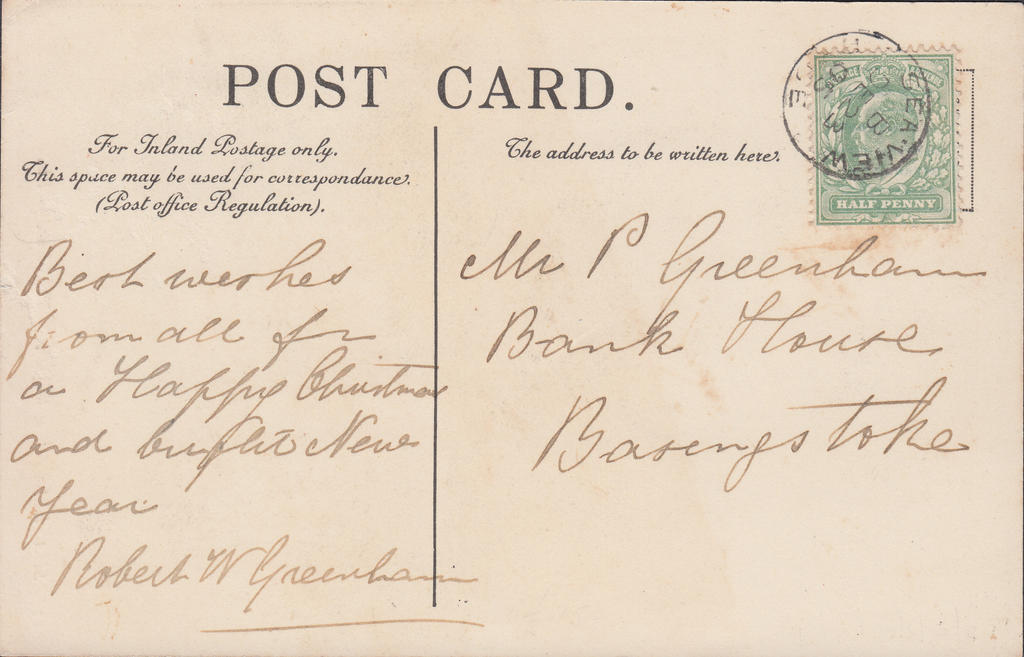 POST CARD.
For Inland Postage only.
This space may be used for correspondance.
(Post office Regulation).
The address to be written here.
SEA VIEW
HALF PENNY
Best wishes
from all for
a Happy Christmas
and bright New
Year
Robert W Greenham
Mr P Greenham
Bank House
Basingstoke